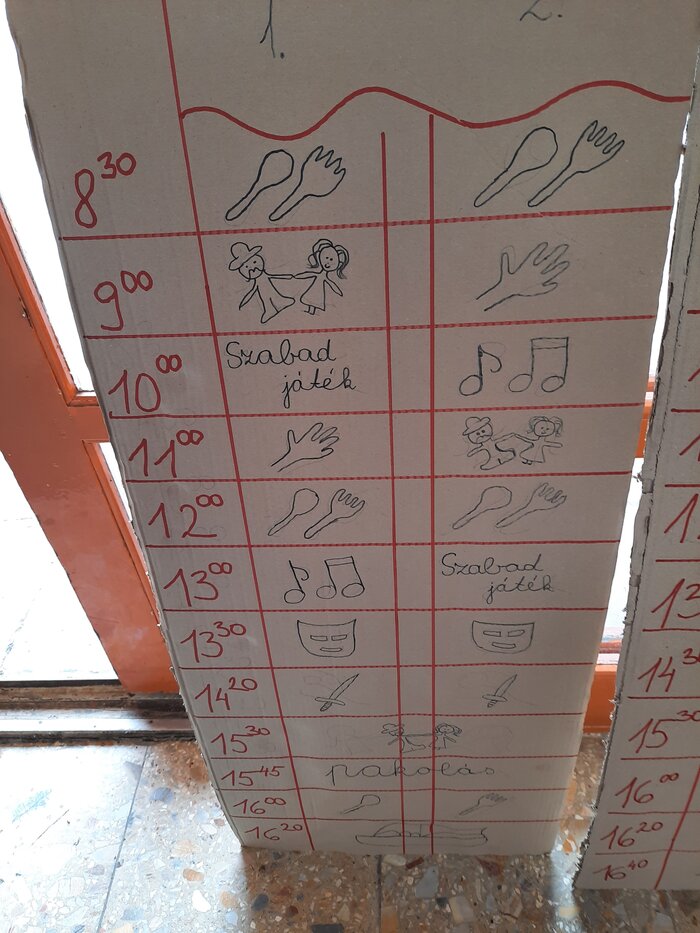 1. 2.
8 30
9 00
10 00 Szabad
játék
11 00
12 00
13 00 Szabad
játék
13 30
14 20
15 30
15 45 pakolás
16 00
16 20
14 3
15 30
16 00
16 20
16 40